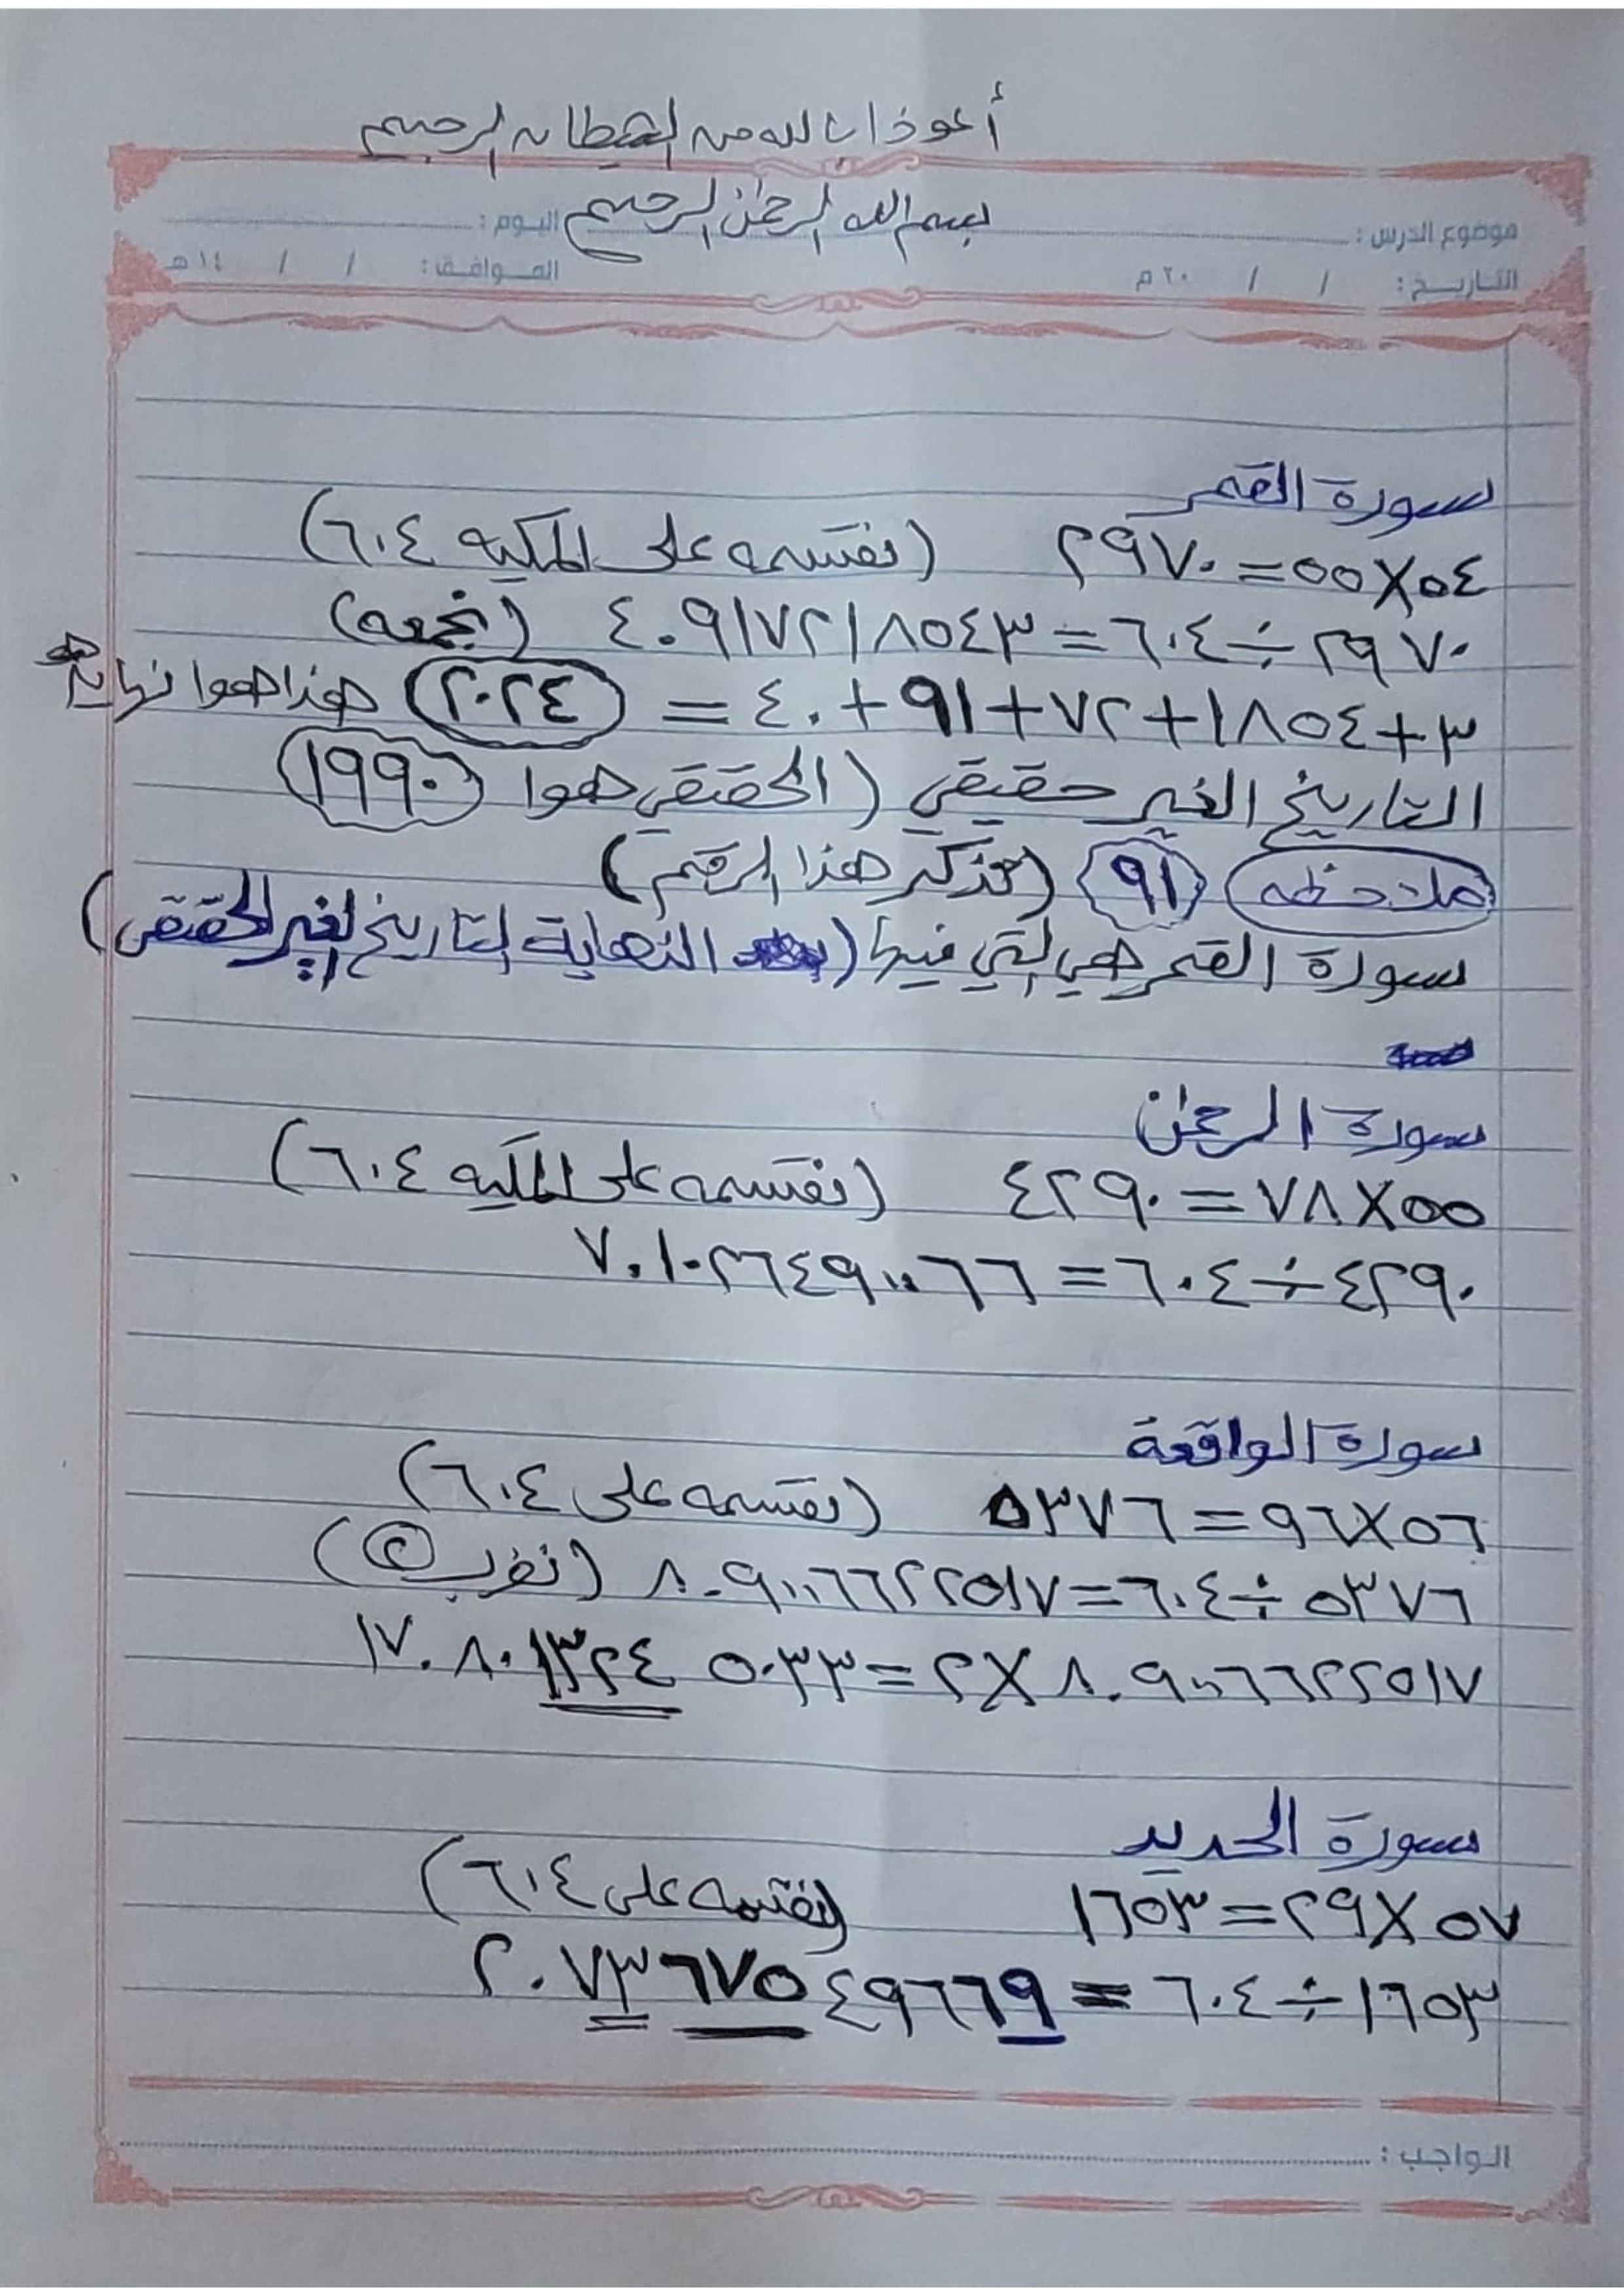 أعوذ بالله من الشيطان الرجيم
بسم الله الرحمن الرحيم
موضوع الدرس : اليوم :
التاريخ : / / ٢٠ م الموافق : / / ١٤ هـ
سورة القمر
٥٤×٥٥=٢٩٧٠ (نقسمه على المكيه ٦٠٤)
٢٩٧٠÷٦٠٤=٤.٩١٧٢١٨٥٤٣ (نجمعه)
٣+١٨٥٤+٧٢+٩١+٤٠ = ٢٠٢٤ هذا هوا نهاية
التاريخ الغير حقيقي (الحقيقي هوا ١٩٩٠)
ملاحظه ٩١ (تذكر هذا الرقم)
سورة القمر هي التي فيها (النهاية التاريخ لغير الحقيقي)
سورة الرحمن
٥٥×٧٨=٤٢٩٠ (نقسمه على المكيه ٦٠٤)
٤٢٩٠÷٦٠٤=٧.١٠٢٦٤٩٠٠٦٦
سورة الواقعة
٥٦×٩٦=٥٣٧٦ (نقسمه على ٦٠٤)
٥٣٧٦÷٦٠٤=٨.٩٠٠٦٦٢٢٥١٧ (نضرب ٢)
٨.٩٠٠٦٦٢٢٥١٧×٢=١٧.٨٠١٣٢٤٥٠٣٣
سورة الحديد
٥٧×٢٩=١٦٥٣ (نقسمه على ٦٠٤)
١٦٥٣÷٦٠٤=٢.٧٣٦٧٥٤٩٦٦٩
الواجب :